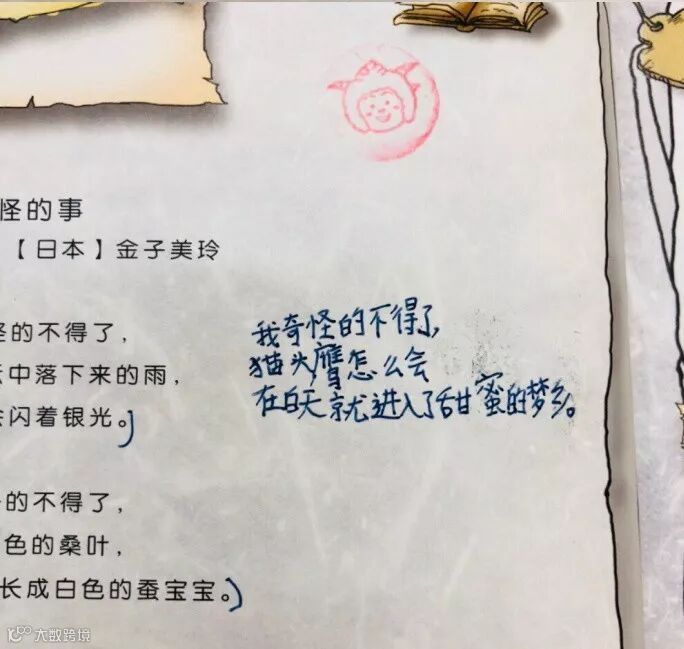 怪的事
【日本】金子美玲
怪的不得了，
云中落下来的雨，
会闪着银光。）
的不得了，
色的桑叶，
长成白色的蚕宝宝。）
我奇怪的不得了，
猫头鹰怎么会
在白天就进入了甜蜜的梦乡。
大数跨境